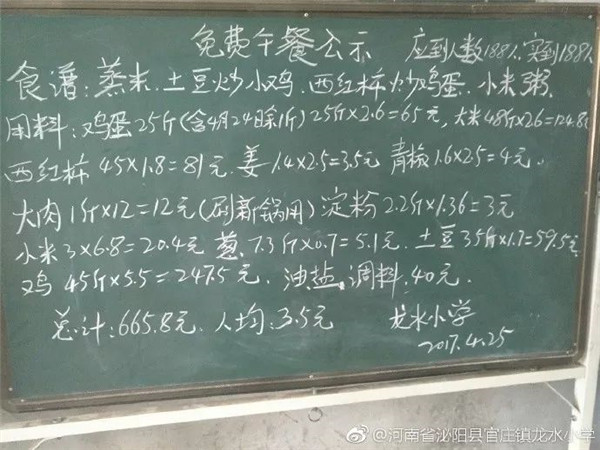 免费午餐公示 应到人数188人,实到188人
食谱:蒸米.土豆炒小鸡.西红柿炒鸡蛋.小米粥.
用料:鸡蛋25斤(含4月24日余1斤)25斤×2.6=65元,大米48斤×2.6=124.8元
西红柿 45×1.8=81元.姜1.4×2.5=3.5元 青椒1.6×2.5=4元.
大肉1斤×12=12元(刷新锅用)淀粉2.2斤×1.36=3元
小米3×6.8=20.4元 葱.7.3斤×0.7=5.1元.土豆35斤×1.7=59.5元
鸡 45斤×5.5=247.5元.油盐.调料.40元.
总计:665.8元.人均:3.5元 龙水小学
2017.4.25
@河南省泌阳县官庄镇龙水小学